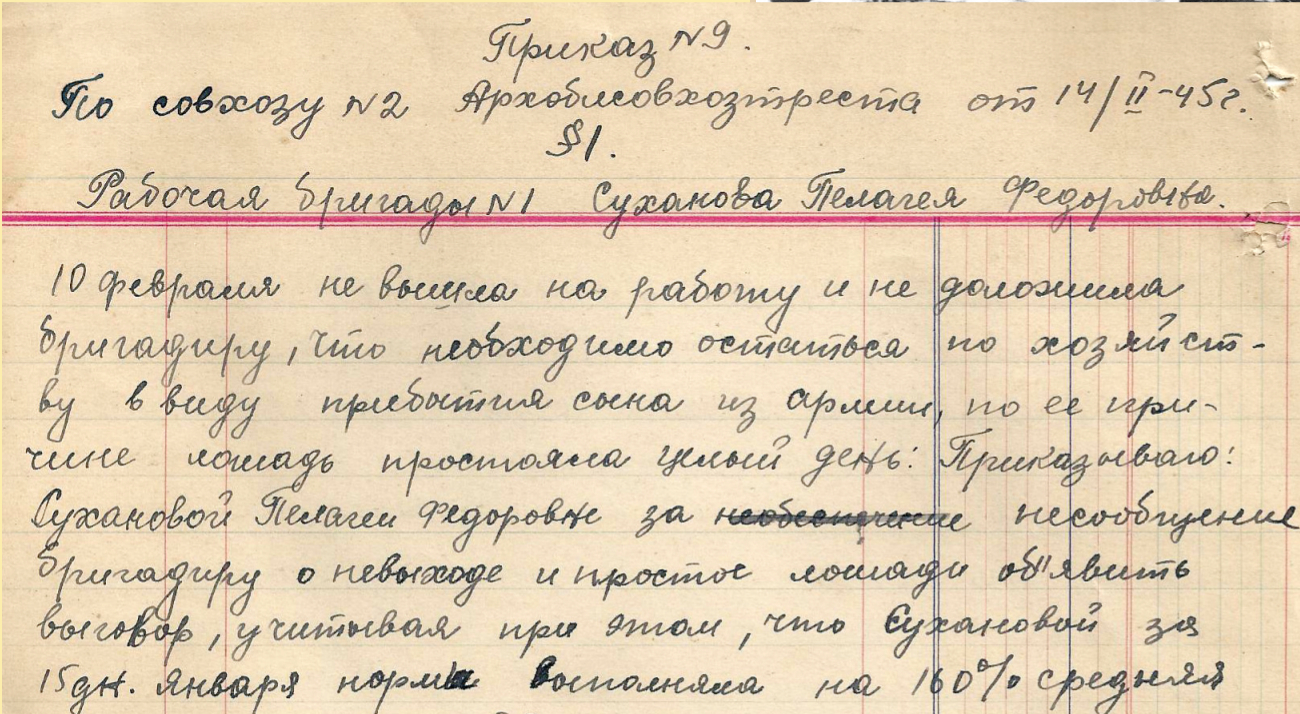 Приказ N9.
По совхозу N2 Архоблсовхозтреста от 14/II-45г.
§1.
Рабочая бригады N1 Суханова Пелагея Федоровна.
10 февраля не вышла на работу и не доложила
бригадиру, что необходимо остаться по хозяйст-
ву в виду прибытия сына из армии, по ее при-
чине лошадь простояла целый день: Приказываю:
Сухановой Пелагеи Федоровне за необеспечение несообщение
бригадиру о невыходе и простое лошади об"явить
выговор, учитывая при этом, что Сухановой за
15 дн. января нормы выполняла на 160% средняя